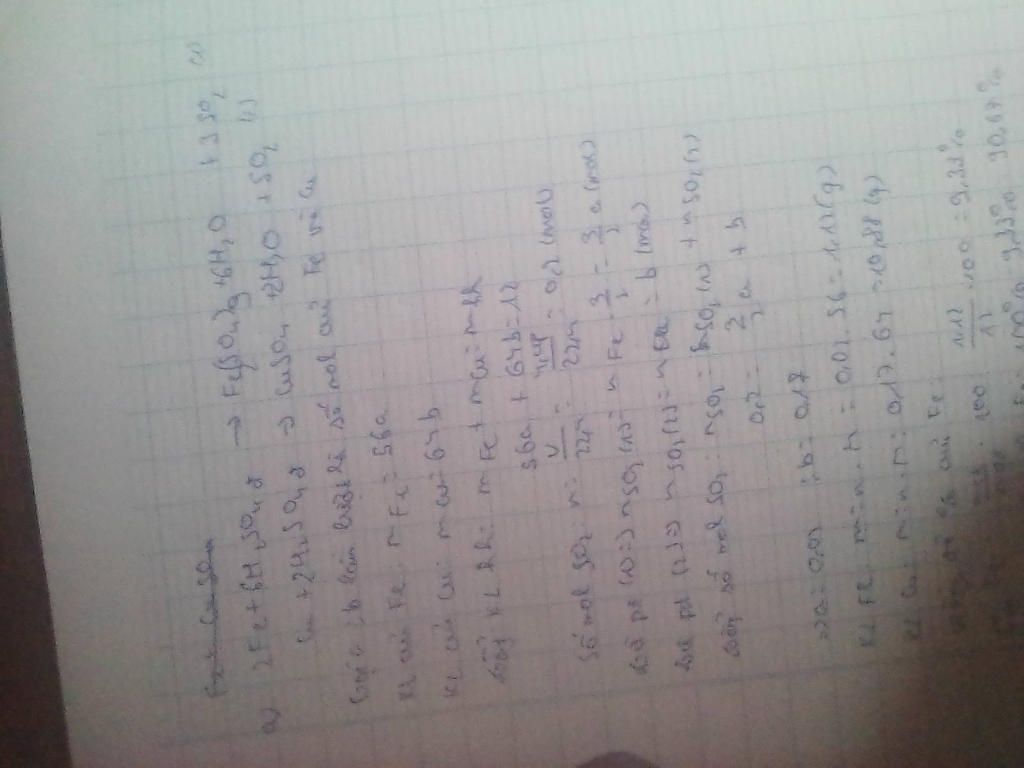 a) 2Fe + 6H2SO4 đ → Fe2(SO4)3 + 6H2O + 3SO2 (1)
Cu + 2H2SO4 đ → CuSO4 + 2H2O + SO2 (2)
Gọi a, b lần lượt là số mol của Fe và Cu
KL của Fe: mFe = 56a
KL của Cu: mCu = 64b
KL hh: mFe + mCu = mhh
56a + 64b = 12
Số mol SO2: n = V/22,4 = 4,48/22,4 = 0,2 (mol)
pt (1) => nSO2 (1) = nFe . 3/2 = 3/2 a (mol)
pt (2) => nSO2 (2) = nCu = b (mol)
số mol SO2: nSO2 = nSO2 (1) + nSO2 (2)
0,2 = 3/2 a + b
=> a = 0,02 ; b = 0,17
KL Fe: m = n.M = 0,02 . 56 = 1,12 (g)
KL Cu: m = n.M = 0,17 . 64 = 10,88 (g)
của Fe: 1,12/12 . 100 = 9,33%
100% - 9,33% = 90,67%